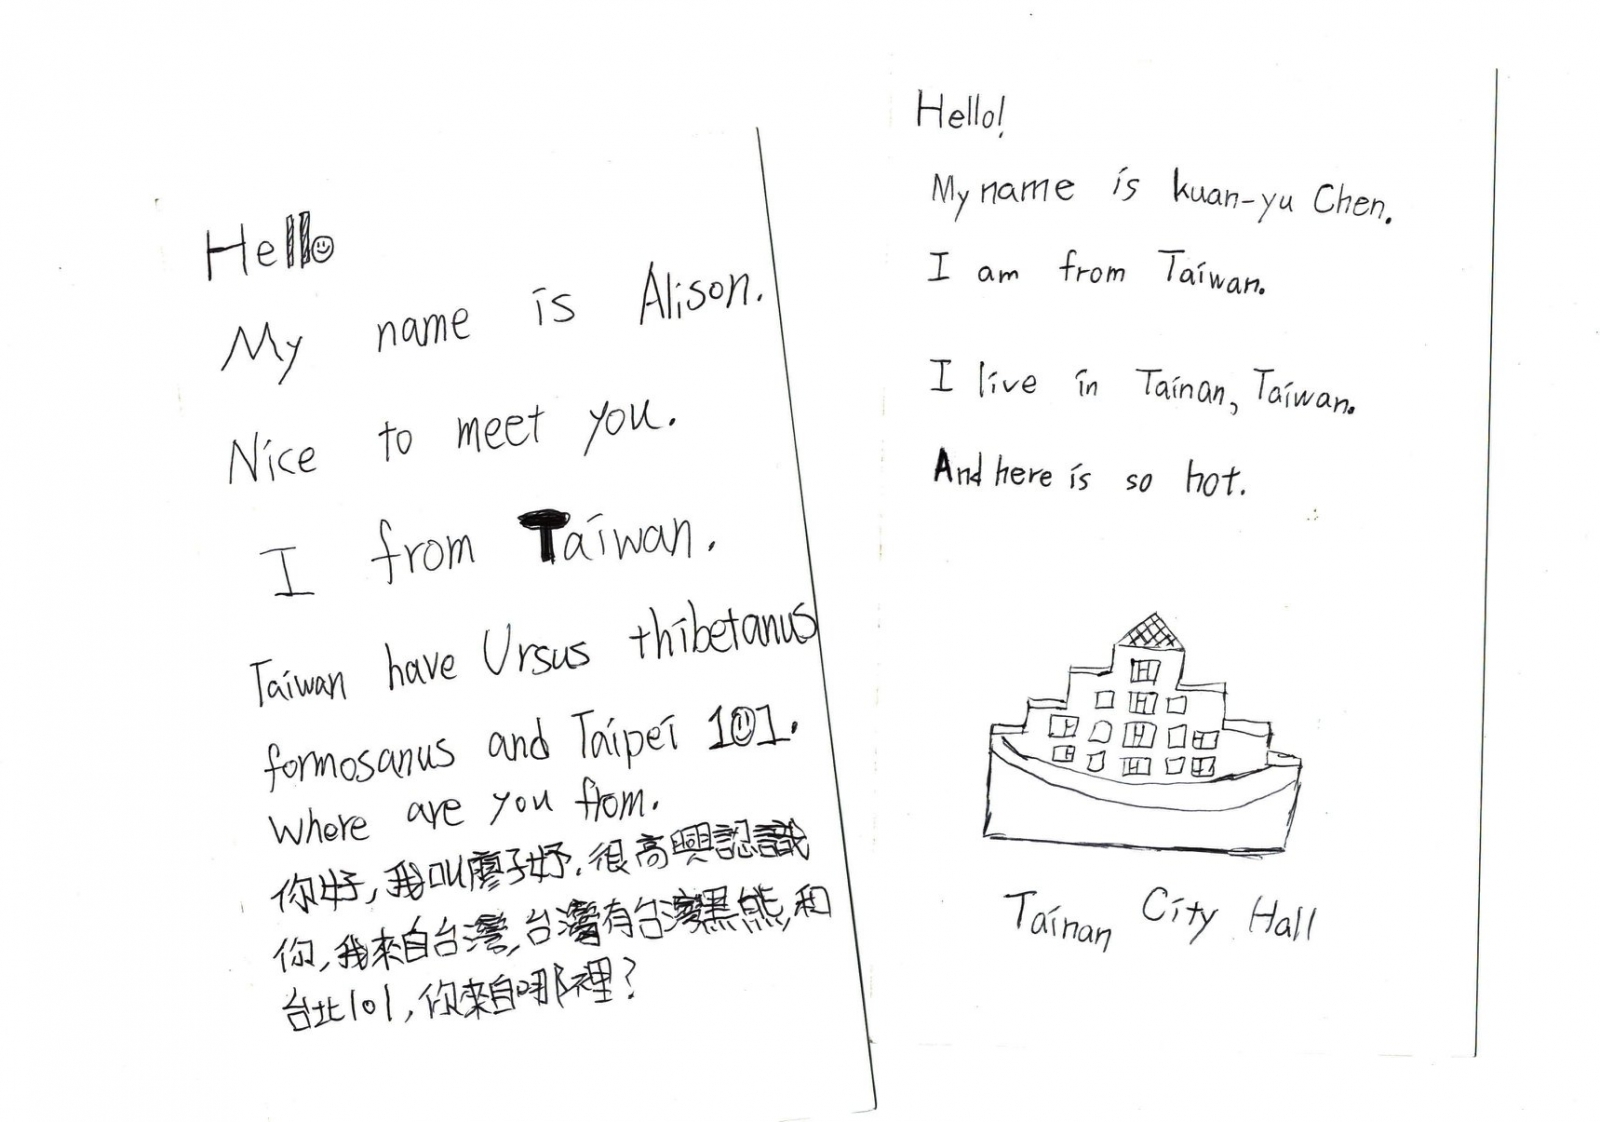 Hello
My name is Alison.
Nice to meet you.
I from Taiwan.
Taiwan have Ursus thibetanus
formosanus and Taipei 101.
Where are you from.
你好,我叫廖子妤.很高興認識
你,我來自台灣,台灣有台灣黑熊,和
台北101,你來自哪裡?
Hello!
My name is kuan-yu Chen.
I am from Taiwan.
I live in Tainan, Taiwan.
And here is so hot.
Tainan City Hall